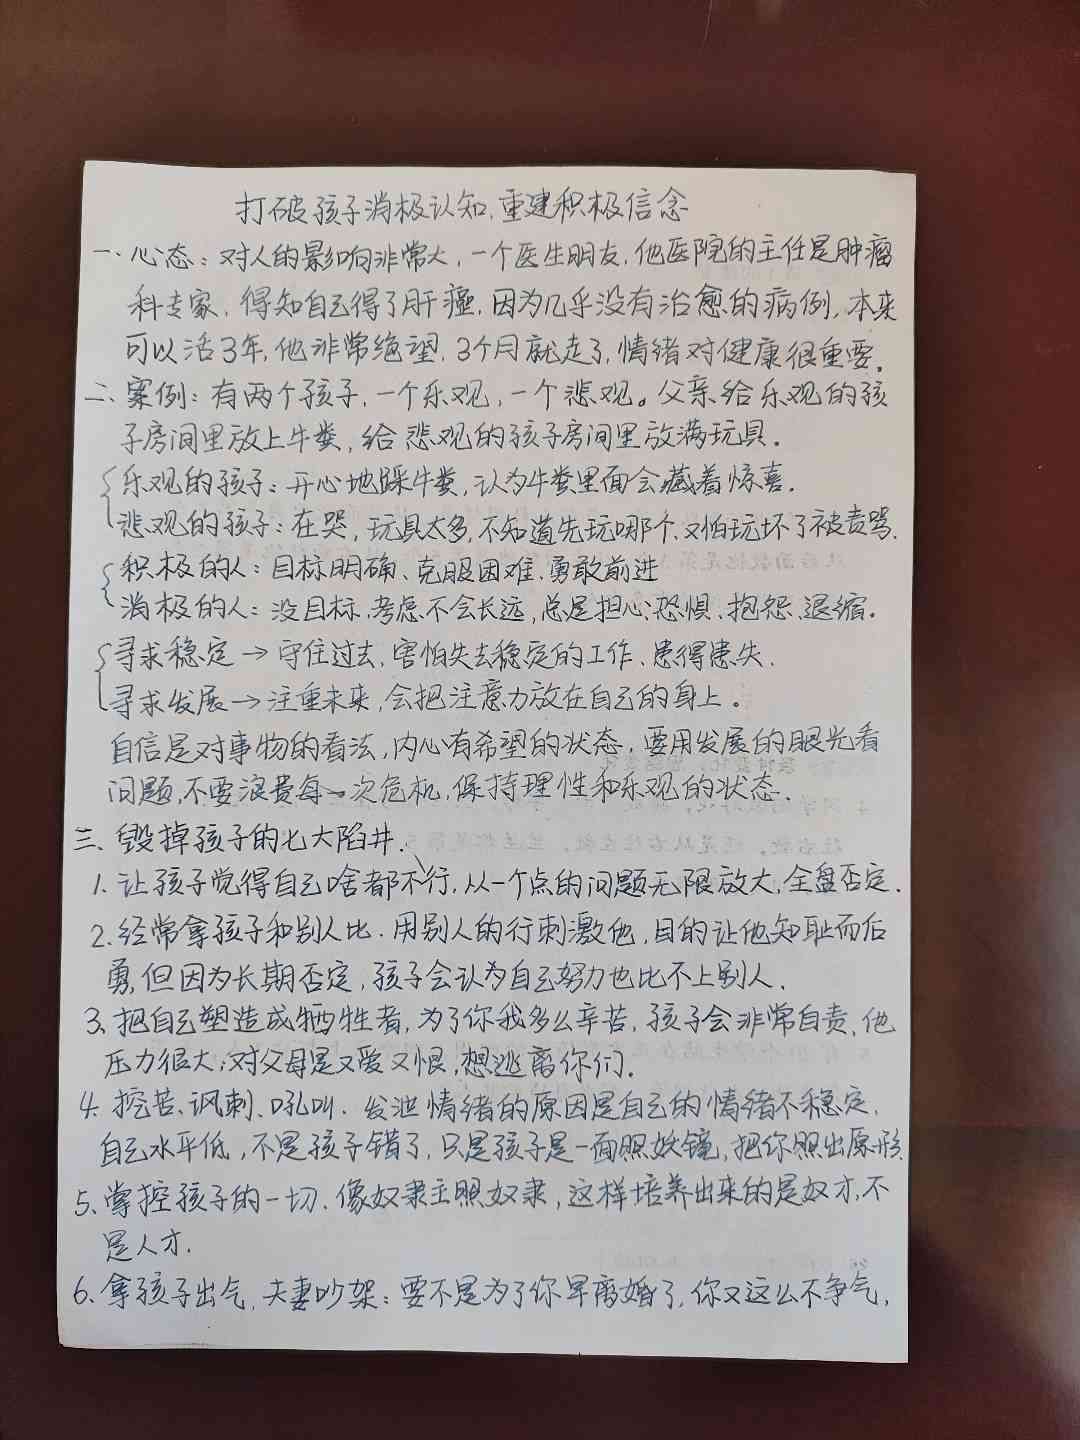 打破孩子消极认知,重建积极信念
一、心态：对人的影响非常大，一个医生朋友，他医院的主任是肿瘤
科专家，得知自己得了肝癌，因为几乎没有治愈的病例，本来
可以活3年，他非常绝望，3个月就走了，情绪对健康很重要。
二、案例：有两个孩子，一个乐观，一个悲观。父亲给乐观的孩
子房间里放上牛粪，给悲观的孩子房间里放满玩具。
乐观的孩子：开心地踩牛粪，认为牛粪里面会藏着惊喜.
悲观的孩子：在哭，玩具太多，不知道先玩哪个、又怕玩坏了被责骂.
积极的人：目标明确、克服困难、勇敢前进
消极的人：没目标、考虑不会长远，总是担心、恐惧、抱怨、退缩。
寻求稳定→守住过去，害怕失去稳定的工作、患得患失.
寻求发展→注重未来，会把注意力放在自己的身上。
自信是对事物的看法，内心有希望的状态，要用发展的眼光看
问题，不要浪费每一次危机，保持理性和乐观的状态.
三、毁掉孩子的七大陷井.
1. 让孩子觉得自己啥都不行，从一个点的问题无限放大，全盘否定.
2. 经常拿孩子和别人比. 用别人的行刺激他，目的让他知耻而后
勇，但因为长期否定，孩子会认为自己努力也比不上别人.
3、把自己塑造成牺牲者，为了你我多么辛苦，孩子会非常自责、他
压力很大，对父母是又爱又恨，想逃离你们.
4. 挖苦、讽刺、吼叫. 发泄情绪的原因是自己的情绪不稳定，
自己水平低，不是孩子错了，只是孩子是一面照妖镜，把你照出原形.
5、掌控孩子的一切. 像奴隶主照奴隶，这样培养出来的是奴才，不
是人才.
6、拿孩子出气，夫妻吵架：要不是为了你早离婚了，你又这么不争气，